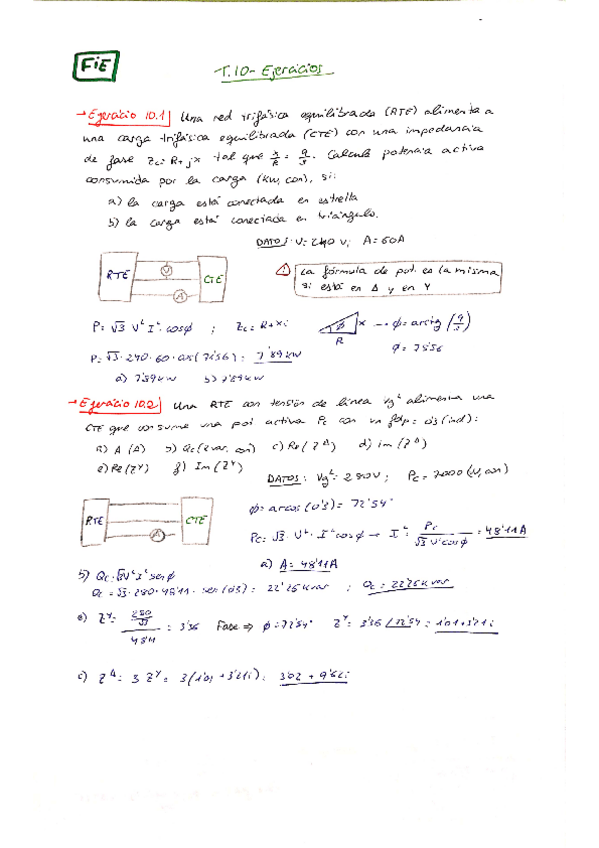 FiE
T.10- Ejercicios
→ Ejercicio 10.1 | Una red trifásica equilibrada (RTE) alimenta a
una carga trifásica equilibrada (CTE) con una impedancia
de fase Zc = R + jx tal que x/R = 9/ . Calcule potencia activa
consumida por la carga (kW, con), si:
a) la carga está conectada en estrella
b) la carga está conectada en triángulo.
DATOS: V = 240 V; A = 60A
RTE V A CTE
⚠ La fórmula de pot. es la misma
si está en Δ y en Y
P = √3 V^L I^L cosφ ; Zc = R + Xi φ R X → φ = arctg (9/ )
P = √3 · 240 · 60 · cos(7 56) = 7'89 kW φ = 7 56
a) 7'89 kW b) 7'89 kW
→ Ejercicio 10.2 | Una RTE con tensión de línea Vg^L alimenta una
CTE que consume una pot activa Pc con un fdp = 0'3 (ind):
a) A (A) b) Qc (kvar, con) c) Re(Z^Δ) d) im(Z^Δ)
e) Re(Z^Y) f) Im(Z^Y)
DATOS: Vg^L = 280V; Pc = 7000 (W, con)
RTE A CTE
φ = arcos(0'3) = 72'54°
Pc = √3 · V^L · I^L cosφ → I^L = Pc / √3 V^L cosφ = 48'11A
a) A = 48'11A
b) Qc = √3 V^L I^L senφ
Qc = √3 · 280 · 48'11 · sen( ) = 22'26 kvar ; Qc = 22'26 kvar
e) Z^Y = 280/√3 / 48'11 = 3'36 Fase ⇒ φ = 72'54° Z^Y = 3'36 /72'54 = 1'01 + 3'21i
c) Z^Δ = 3 Z^Y = 3(1'01 + 3'21i) = 3'02 + 9'62i